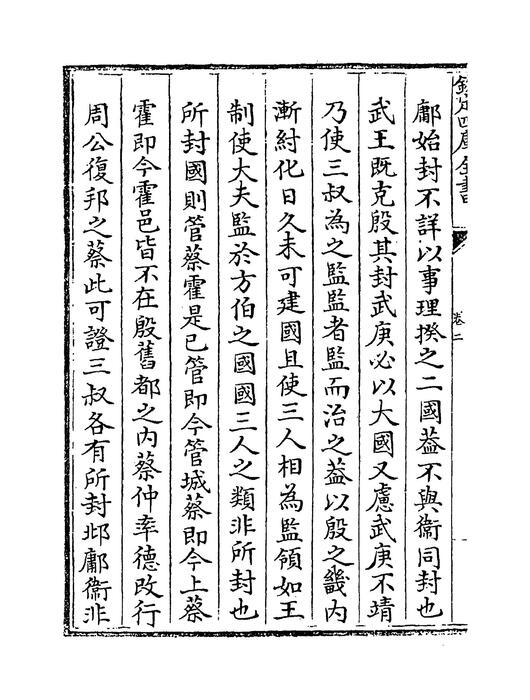 欽定四庫全書
卷二
鄘始封不詳以事理揆之二國葢不與衞同封也
武王既克殷其封武庚必以大國又慮武庚不靖
乃使三叔為之監監者監而治之葢以殷之畿内
漸紂化日久未可建國且使三人相為監領如王
制使大夫監於方伯之國國三人之類非所封也
所封國則管蔡霍是已管即今管城蔡即今上蔡
霍即今霍邑皆不在殷舊都之内蔡仲率德改行
周公復邦之蔡此可證三叔各有所封邶鄘衞非